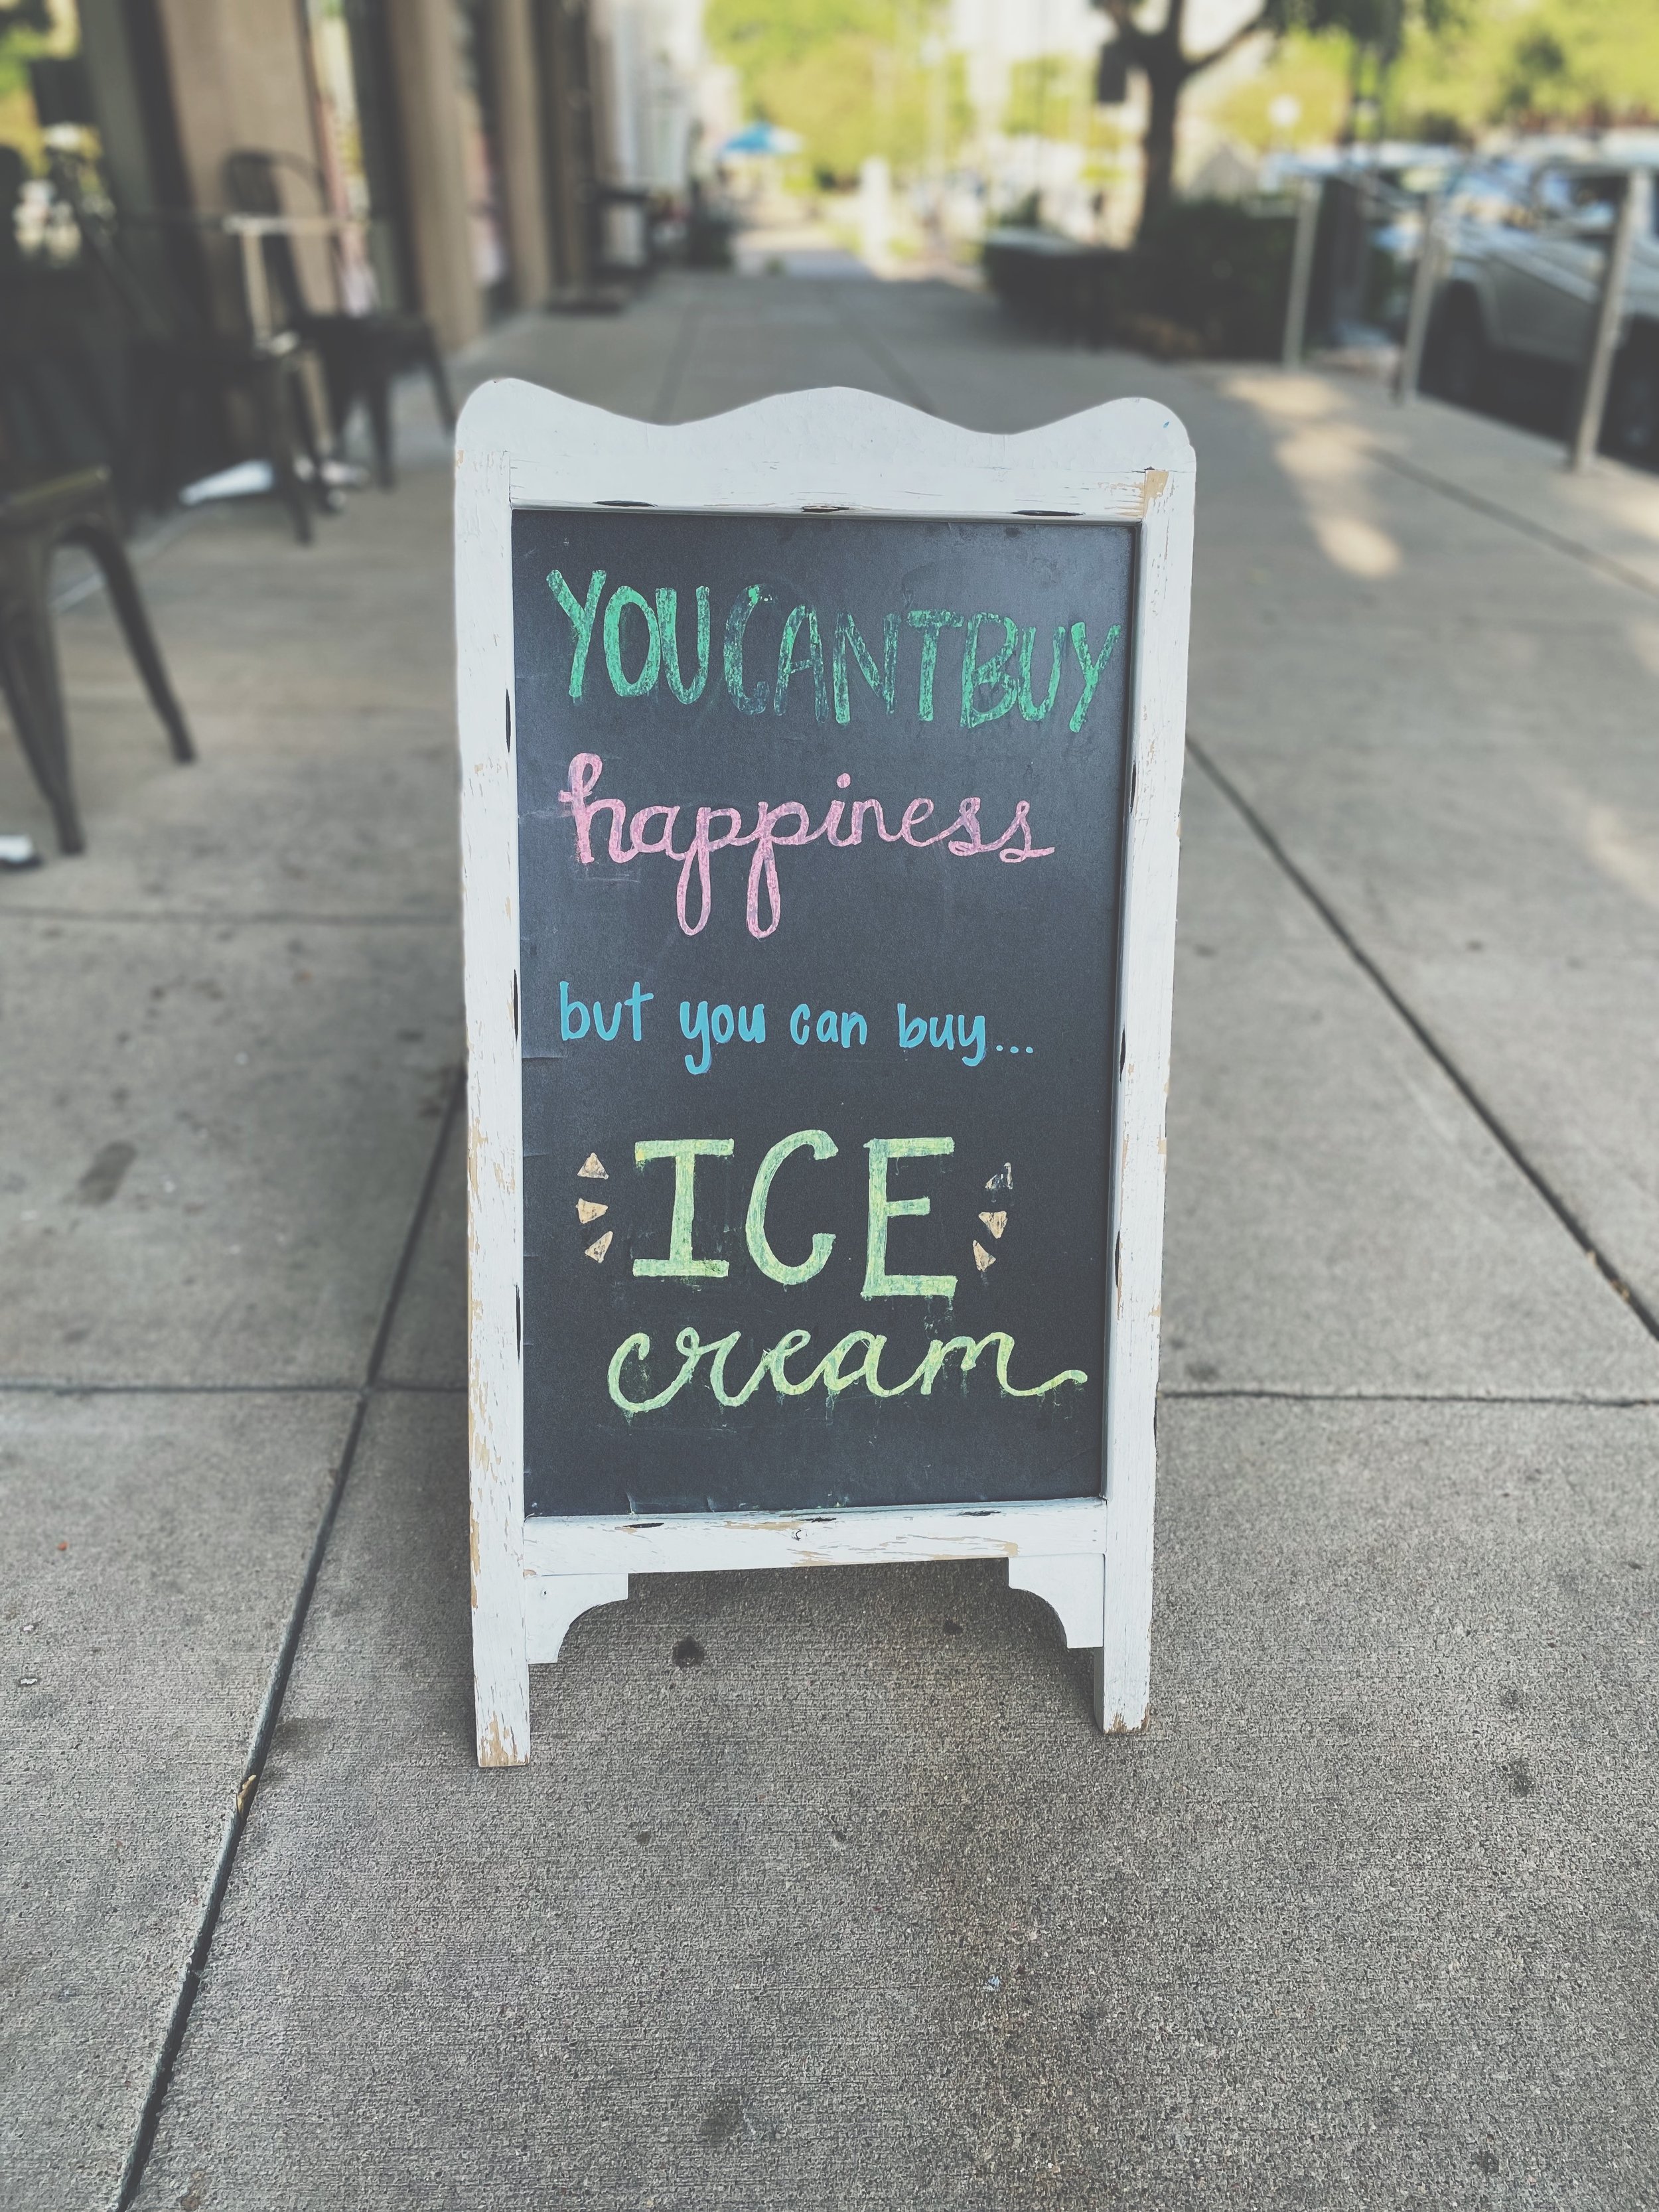 YOU CANT BUY
happiness
but you can buy...
ICE
cream